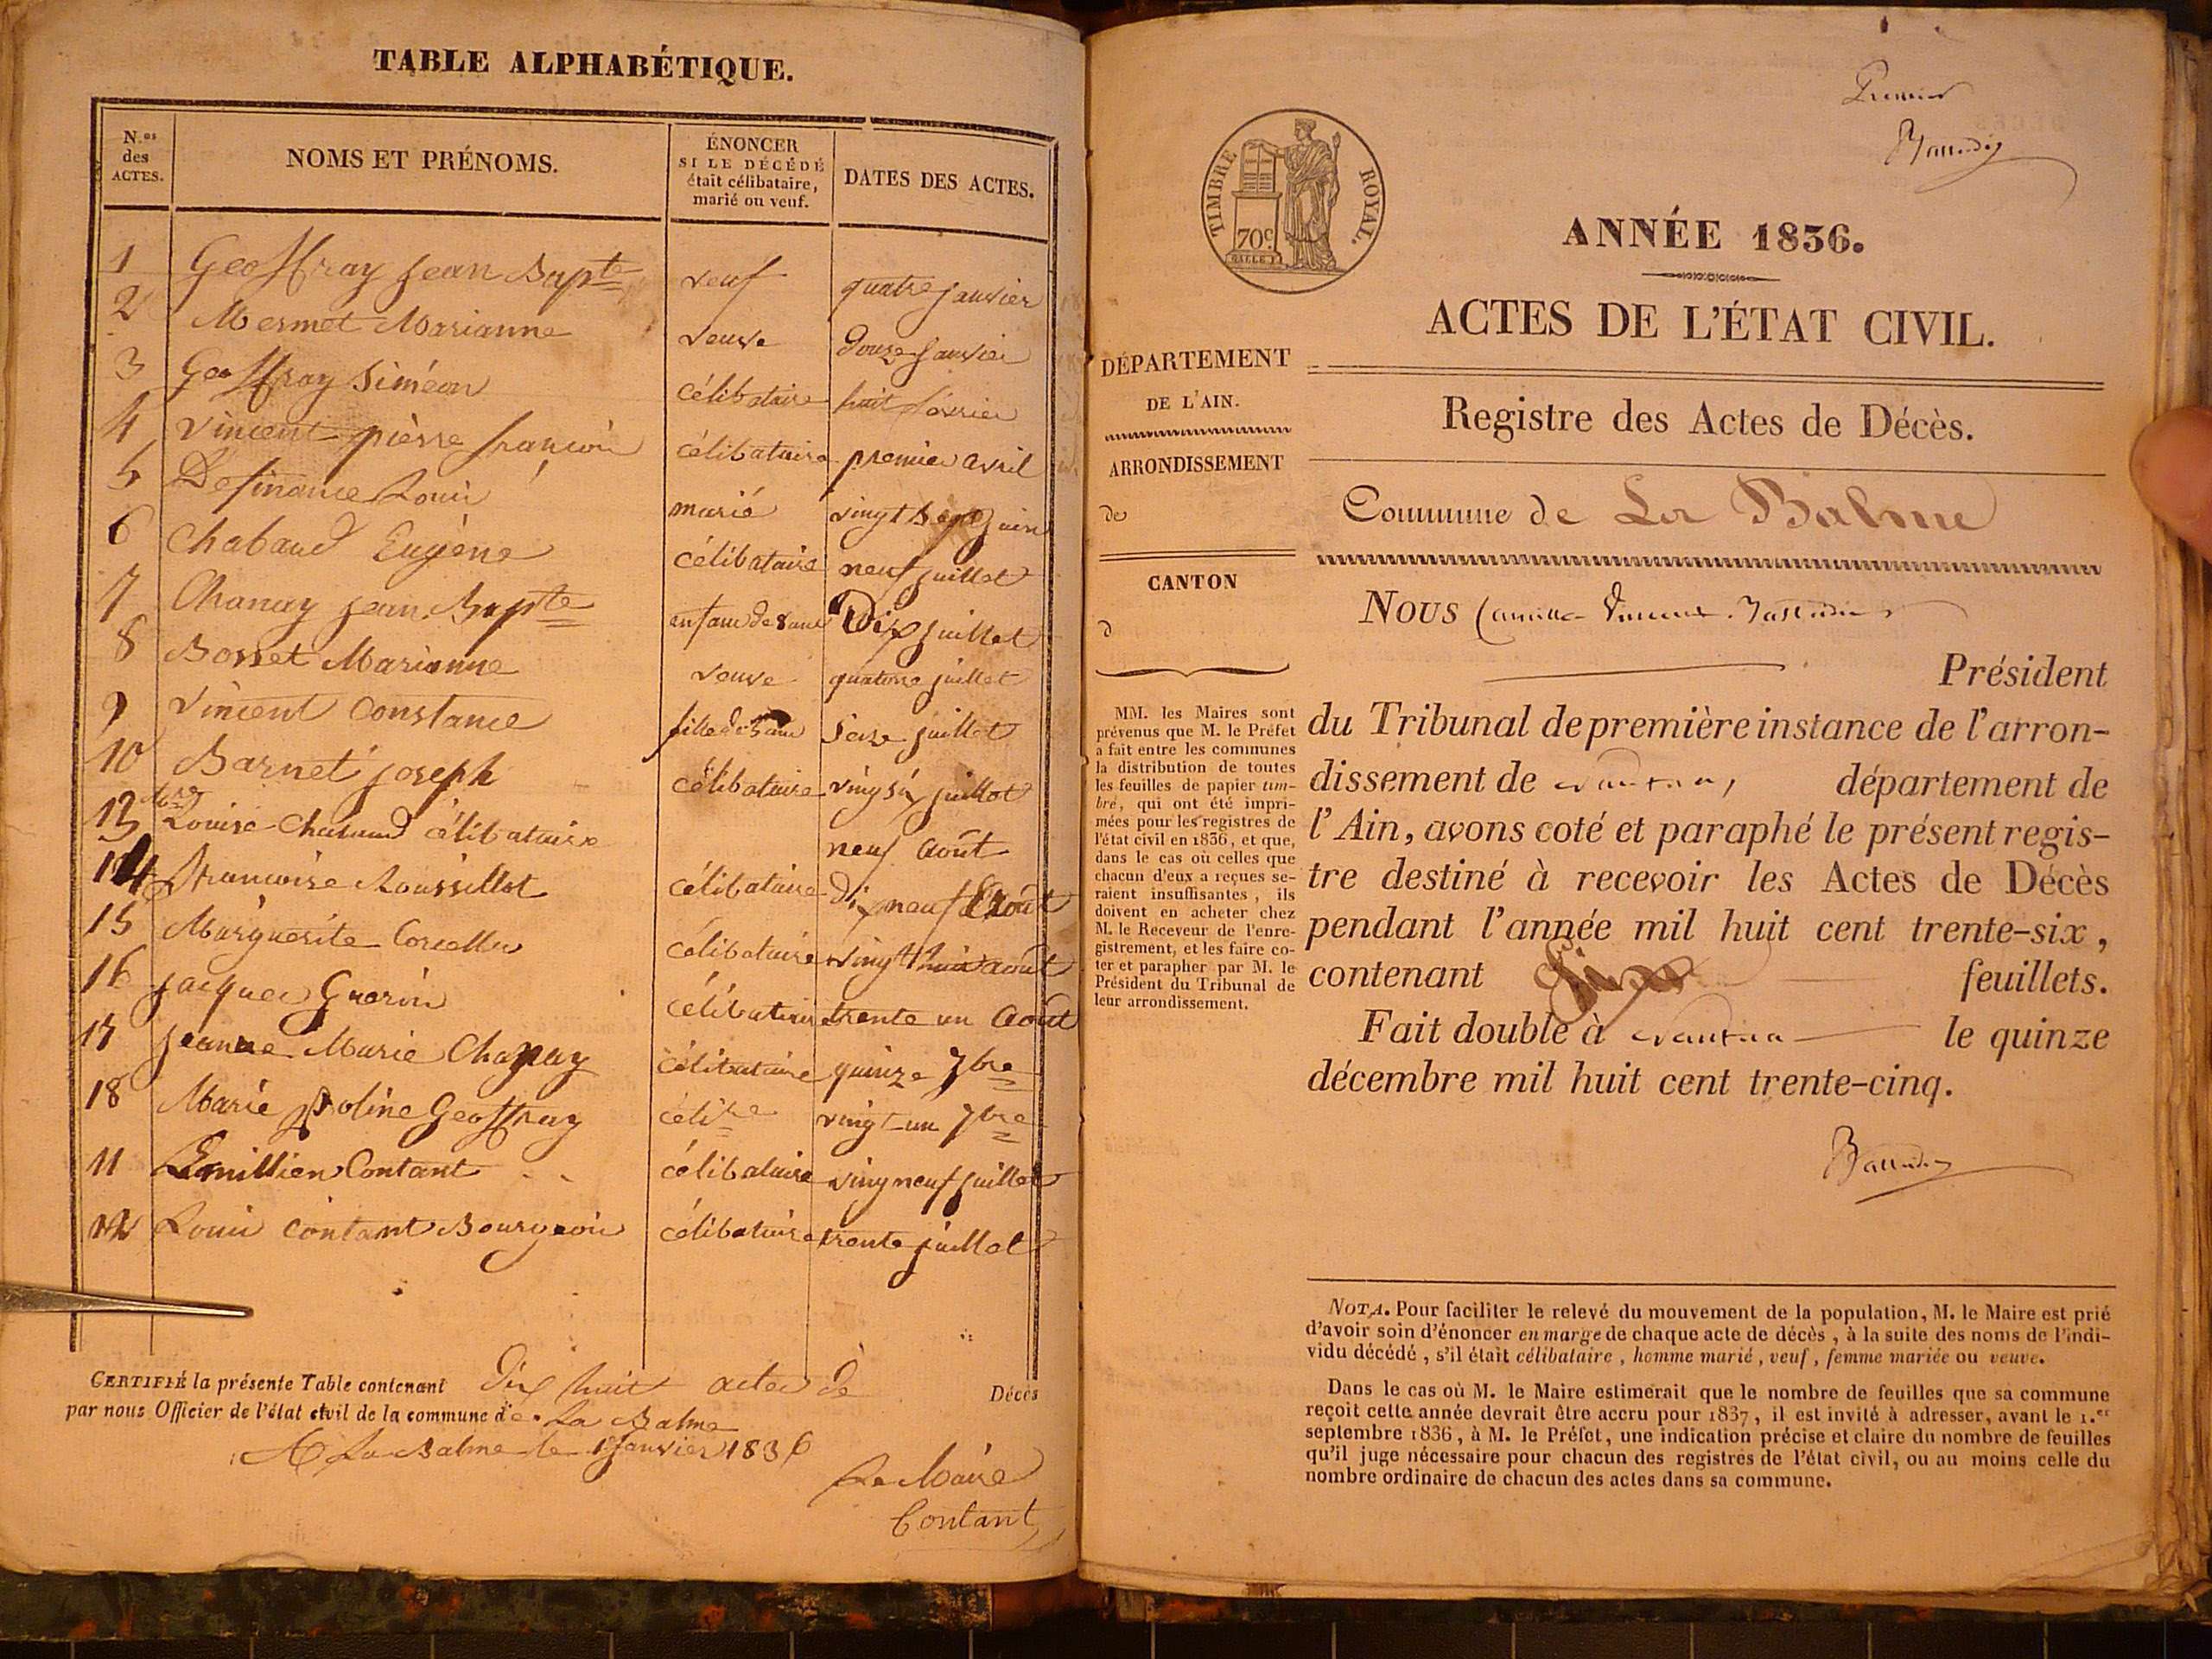 TABLE ALPHABÉTIQUE.
N.os des ACTES.
NOMS ET PRÉNOMS.
ÉNONCER SI LE DÉCÉDÉ était célibataire, marié ou veuf.
DATES DES ACTES.
1 Geoffray Jean Bapte veuf quatre janvier
2 Mermet Marianne veuve douze janvier
3 Geoffray Siméon célibataire huit février
4 Vincent pièrre françois célibataire premier avril
5 Definance Louis marié vingt sept juin
6 Chabaud Eugène célibataire neuf juillet
7 Chanay jean Bapte enfant de 8 ans Dix juillet
8 Borret Marianne veuve quatorze juillet
9 Vincent Constance fille de ans seize juillet
10 Barnet joseph célibataire vingsix juillet
13 Louise Chabaud célibataire neuf août
14 françoise Roussillot célibataire dix neuf août
15 Marguerite célibataire vingt huit août
16 jacques Guerin célibataire trente un août
17 jeanne Marie Chapuy célibataire quinze 7bre
18 Marie Poline Geoffray célibre vingt un 7bre
11 Emillien Contant célibataire vingneuf juillet
12 Louis Contant Bourgeois célibataire trente juillet
CERTIFIÉ la présente Table contenant dix huit actes de Décès
par nous Officier de l'état civil de la commune de La Balme
A La Balme le 1 Janvier 1836
Le Maire
Contant
Premier
TIMBRE ROYAL.
70c.
ANNÉE 1836.
ACTES DE L'ÉTAT CIVIL.
Registre des Actes de Décès.
Commune de La Balme
DÉPARTEMENT
DE L'AIN.
ARRONDISSEMENT
de
CANTON
d
MM. les Maires sont
prévenus que M. le Préfet
a fait entre les communes
la distribution de toutes
les feuilles de papier tim-
bré, qui ont été impri-
mées pour les registres de
l'état civil en 1836, et que,
dans le cas où celles que
chacun d'eux a reçues se-
raient insuffisantes, ils
doivent en acheter chez
M. le Receveur de l'enre-
gistrement, et les faire co-
ter et parapher par M. le
Président du Tribunal de
leur arrondissement.
NOUS Camille Vincent
Président
du Tribunal de première instance de l'arron-
dissement de nantua, département de
l'Ain, avons coté et paraphé le présent regis-
tre destiné à recevoir les Actes de Décès
pendant l'année mil huit cent trente-six,
contenant feuillets.
Fait double à nantua le quinze
décembre mil huit cent trente-cinq.
NOTA. Pour faciliter le relevé du mouvement de la population, M. le Maire est prié
d'avoir soin d'énoncer en marge de chaque acte de décès, à la suite des noms de l'indi-
vidu décédé, s'il était célibataire, homme marié, veuf, femme mariée ou veuve.
Dans le cas où M. le Maire estimerait que le nombre de feuilles que sa commune
reçoit cette année devrait être accru pour 1837, il est invité à adresser, avant le 1.er
septembre 1836, à M. le Préfet, une indication précise et claire du nombre de feuilles
qu'il juge nécessaire pour chacun des registres de l'état civil, ou au moins celle du
nombre ordinaire de chacun des actes dans sa commune.